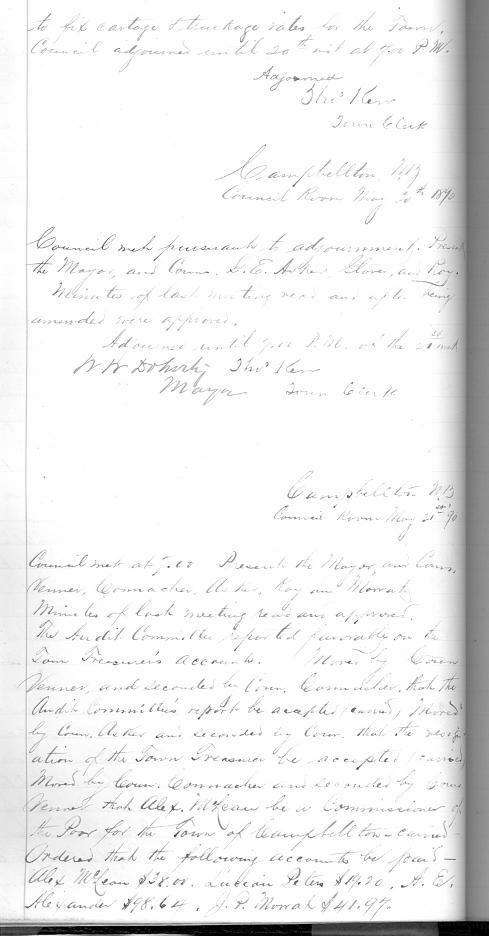 to fix cartage & truckage rates for the Town.
Council adjourned until 20th inst at 7.00 P.M.
Adjourned
Thos Kerr
Town Clerk
Campbellton N.B
Council Room May 20th 1890
Council met pursuant to adjournment. Present
the Mayor, and Coun. D. E. Asker, Glover, and Roy.
Minutes of last meeting read and after being
amended were approved.
Adjourned until 7.00 P.M. of the 21st inst
W W Doherty Thos Kerr
Mayor Town Clerk
Campbellton N.B
Council Room May 21st 90
Council met at 7.00 Present the Mayor, and Couns.
Venner, Connacher, Asker, Roy and Mowat
Minutes of last meeting read and approved.
The Audit Committee reported favorable on the
Town Treasurer's accounts. Moved by Coun
Venner, and seconded by Coun. Connacher, that the
Audit Committee's report be accepted (carried) Moved
by Coun. Asker and seconded by Coun. that the resign
ation of the Town Treasurer be accepted (carried
Moved by Coun. Connacher and seconded by Coun
Venner that Alex. McLean be a Commissioner of
the Poor for the Town of Campbellton - carried -
Ordered that the following accounts be paid -
Alex McLean $38.00. Lucian Peters $19.20. A. E.
Alexander $98.64. J. P. Mowat $41.97.